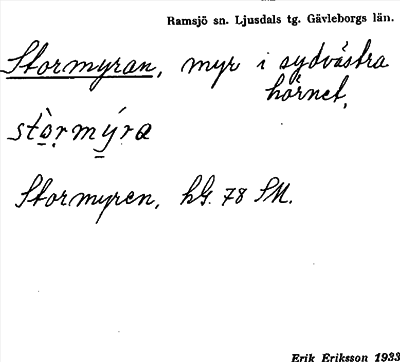 Ramsjö sn. Ljusdals tg. Gävleborgs län.
Stormyran, myr i sydvästra
hörnet.
stò̱ṛmý̱ra
Stormyren, hG. 78 SM.
Erik Eriksson 1933